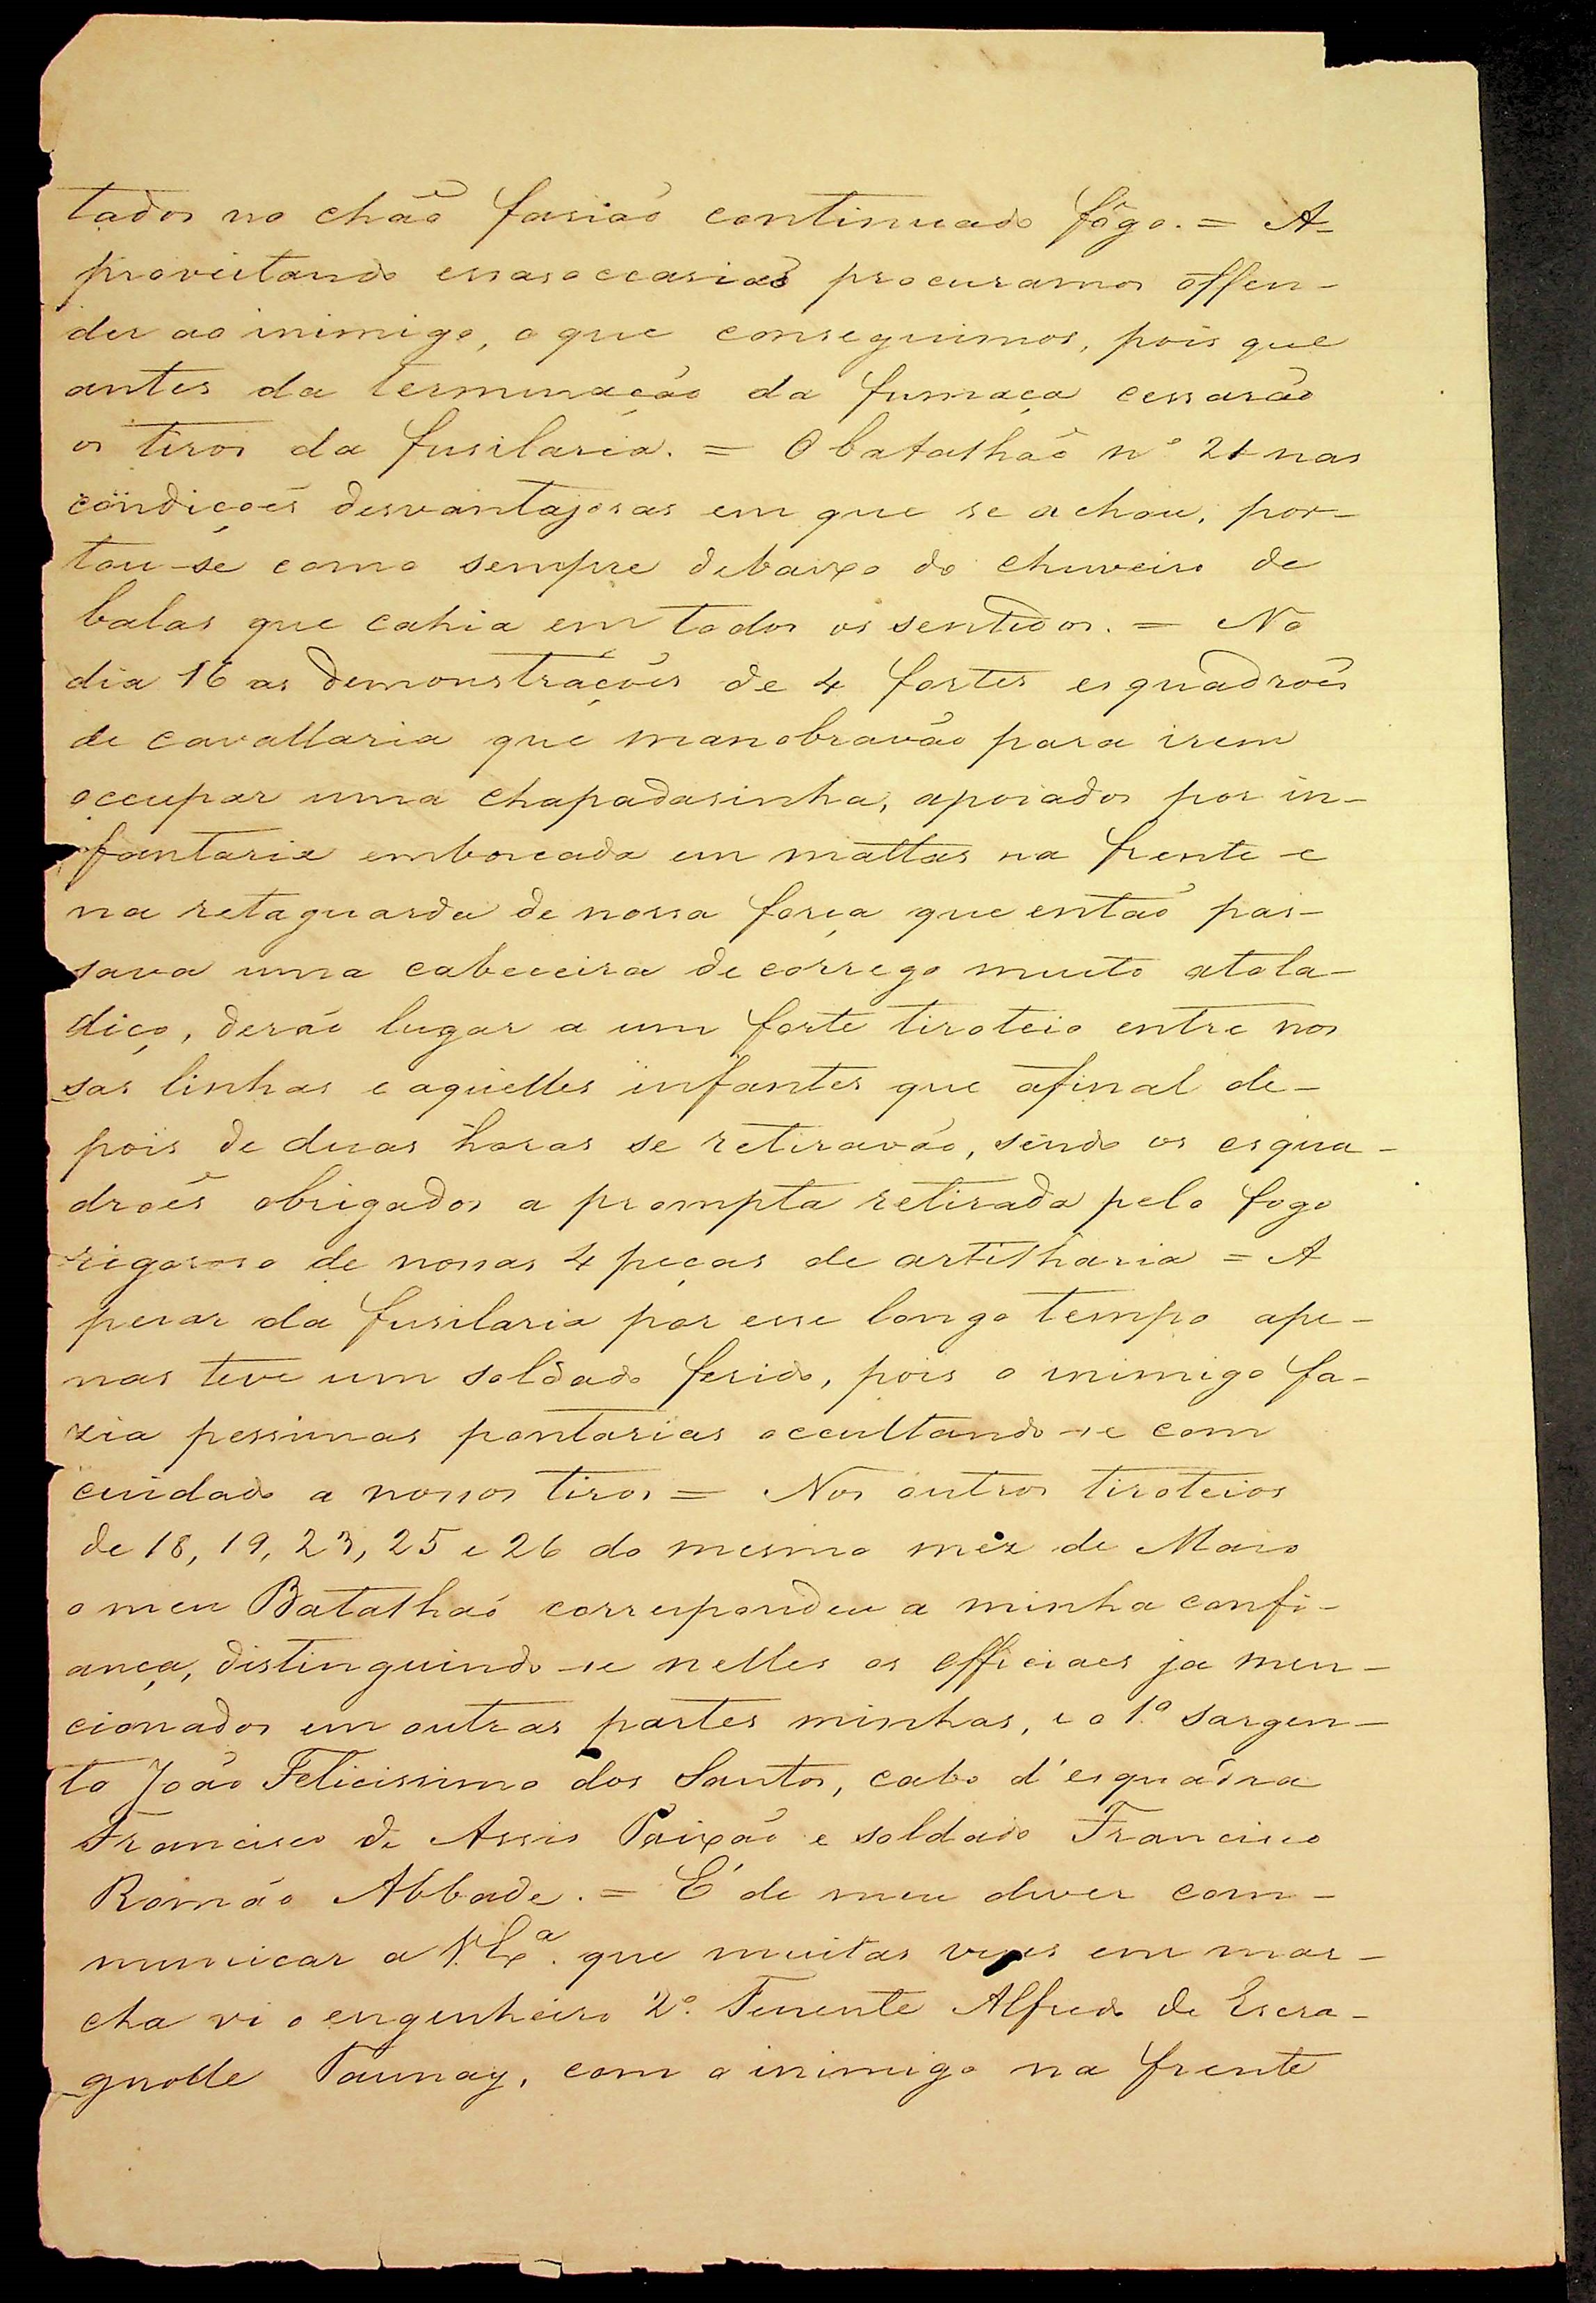 tados no chão fasião continuado fôgo. = A-
proveitando essa occasião procuramos offen-
der ao inimigo, o que conseguimos, pois que
antes da terminação da fumaça cessarão
os tiros da fusilaria. = O batalhão nº 21 nas
condições desvantajosas em que se achou, por-
tou-se como sempre debaixo do chuveiro de
balas que cahia em todos os sentidos. = No
dia 16 as demonstrações de 4 fortes esquadrões
de cavallaria que manobravão para irem
occupar uma chapadasinha, apoiados por in-
fantaria emboscada em mattas na frente e
na retaguarda de nossa força que então pas-
sava uma cabeceira de corrego muito atola-
diço, derão lugar a um forte tiroteio entre nos
sas linhas e aquelles infantes que afinal de-
pois de duas horas se retiravão, sendo os esqua-
drões obrigados a prompta retirada pelo fogo
rigoroso de nossas 4 peças de artilharia = A
pesar da fusilaria por esse longo tempo ape-
nas teve um soldado ferido, pois o inimigo fa-
zia pessimas pontarias occultando-se com
cuidado a nossos tiros = Nos outros tiroteios
de 18, 19, 23, 25 e 26 do mesmo mêz de Maio
o meu Batalhão correspondeu a minha confi-
ança, distinguindo-se nelles os officiaes ja men-
cionados em outras partes minhas, e o 1º sargen-
to João Felicissimo dos Santos, cabo d'esquadra
Francisco de Assis Paixão e soldado Francisco
Romão Abbade. = É de meu dever com-
municar a V. Exª. que muitas vezes em mar-
cha vi o engenheiro 2º. Tenente Alfredo de Escra-
gnolle Taunay, com o inimigo na frente